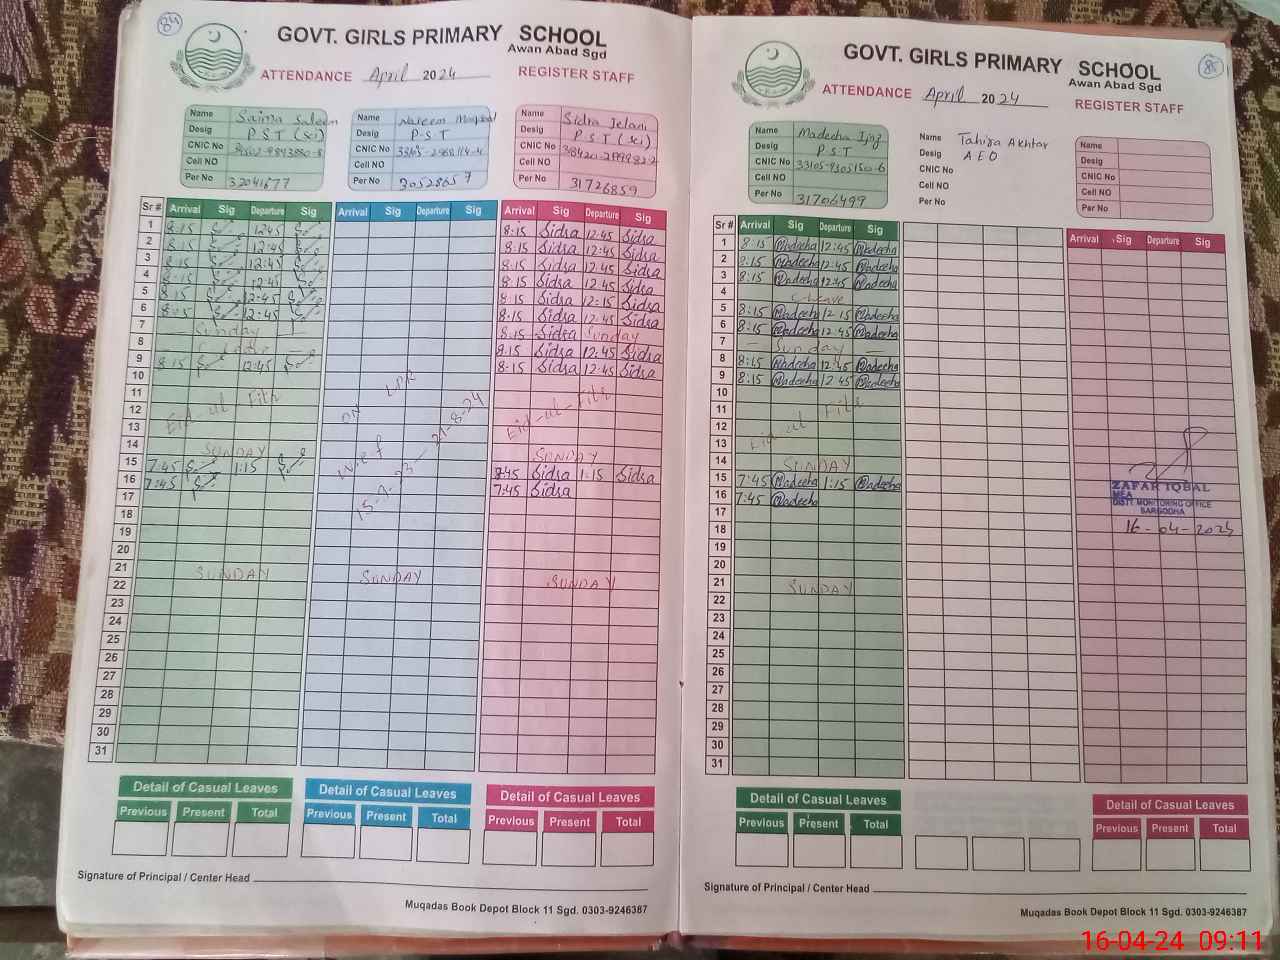 84
GOVT. GIRLS PRIMARY SCHOOL
Awan Abad Sgd
ATTENDANCE April 2024 REGISTER STAFF
Name Saima Saleem
Desig P.S.T (sci)
CNIC No
Cell NO
Per No
Name
Desig P.S.T
CNIC No
Cell NO
Per No 30528657
Name Sidra Jelani
Desig P.S.T (sci)
CNIC No
Cell NO
Per No 31726859
Sr # Arrival Sig Departure Sig Arrival Sig Departure Sig Arrival Sig Departure Sig
1 8:15 12:45 8:15 Sidra 12:45 Sidra
2 8:15 12:45 8:15 Sidra 12:45 Sidra
3 8:15 12:45 8:15 Sidra 12:45 Sidra
4 8:15 12:45 8:15 Sidra 12:45 Sidra
5 8:15 12:45 8:15 Sidra 12:15 Sidra
6 8:15 12:45 8:15 Sidra 12:45 Sidra
7 Sunday 8:15 Sidra Sunday
8 8:15 Sidra 12:45 Sidra
9 8:15 12:45 8:15 Sidra 12:45 Sidra
10
11
12 Eid-ul Fitr on LPR Eid-ul-Fitr
13
14 SUNDAY w.e.f SUNDAY
15 7:45 1:15 7:45 Sidra 1:15 Sidra
16 7:45 7:45 Sidra
17
18
19
20
21 SUNDAY SUNDAY SUNDAY
22
23
24
25
26
27
28
29
30
31
Detail of Casual Leaves
Previous Present Total
Detail of Casual Leaves
Previous Present Total
Detail of Casual Leaves
Previous Present Total
Signature of Principal / Center Head
Muqadas Book Depot Block 11 Sgd. 0303-9246387
85
GOVT. GIRLS PRIMARY SCHOOL
Awan Abad Sgd
ATTENDANCE April 2024 REGISTER STAFF
Name Madeeha Ijaz
Desig P.S.T
CNIC No 33105-9305150-6
Cell NO
Per No 31706499
Name Tahira Akhtar
Desig AEO
CNIC No
Cell NO
Per No
Name
Desig
CNIC No
Cell NO
Per No
Sr # Arrival Sig Departure Sig Arrival Sig Departure Sig
1 8:15 Madeeha 12:45 Madeeha
2 8:15 Madeeha 12:45 Madeeha
3 8:15 Madeeha 12:45 Madeeha
4 Leave
5 8:15 Madeeha 12:15 Madeeha
6 8:15 Madeeha 12:45 Madeeha
7 Sunday
8 8:15 Madeeha 12:45 Madeeha
9 8:15 Madeeha 12:45 Madeeha
10
11
12 Eid ul Fitr
13
14 SUNDAY
15 7:45 Madeeha 1:15 Madeeha
16 7:45 Madeeha
17
18
19
20
21 SUNDAY
22
23
24
25
26
27
28
29
30
31
ZAFAR IQBAL
MEA
DISTT. MONITORING OFFICE
SARGODHA
16-04-2024
Detail of Casual Leaves
Previous Present Total
Detail of Casual Leaves
Previous Present Total
Signature of Principal / Center Head
Muqadas Book Depot Block 11 Sgd. 0303-9246387
16-04-24 09:11